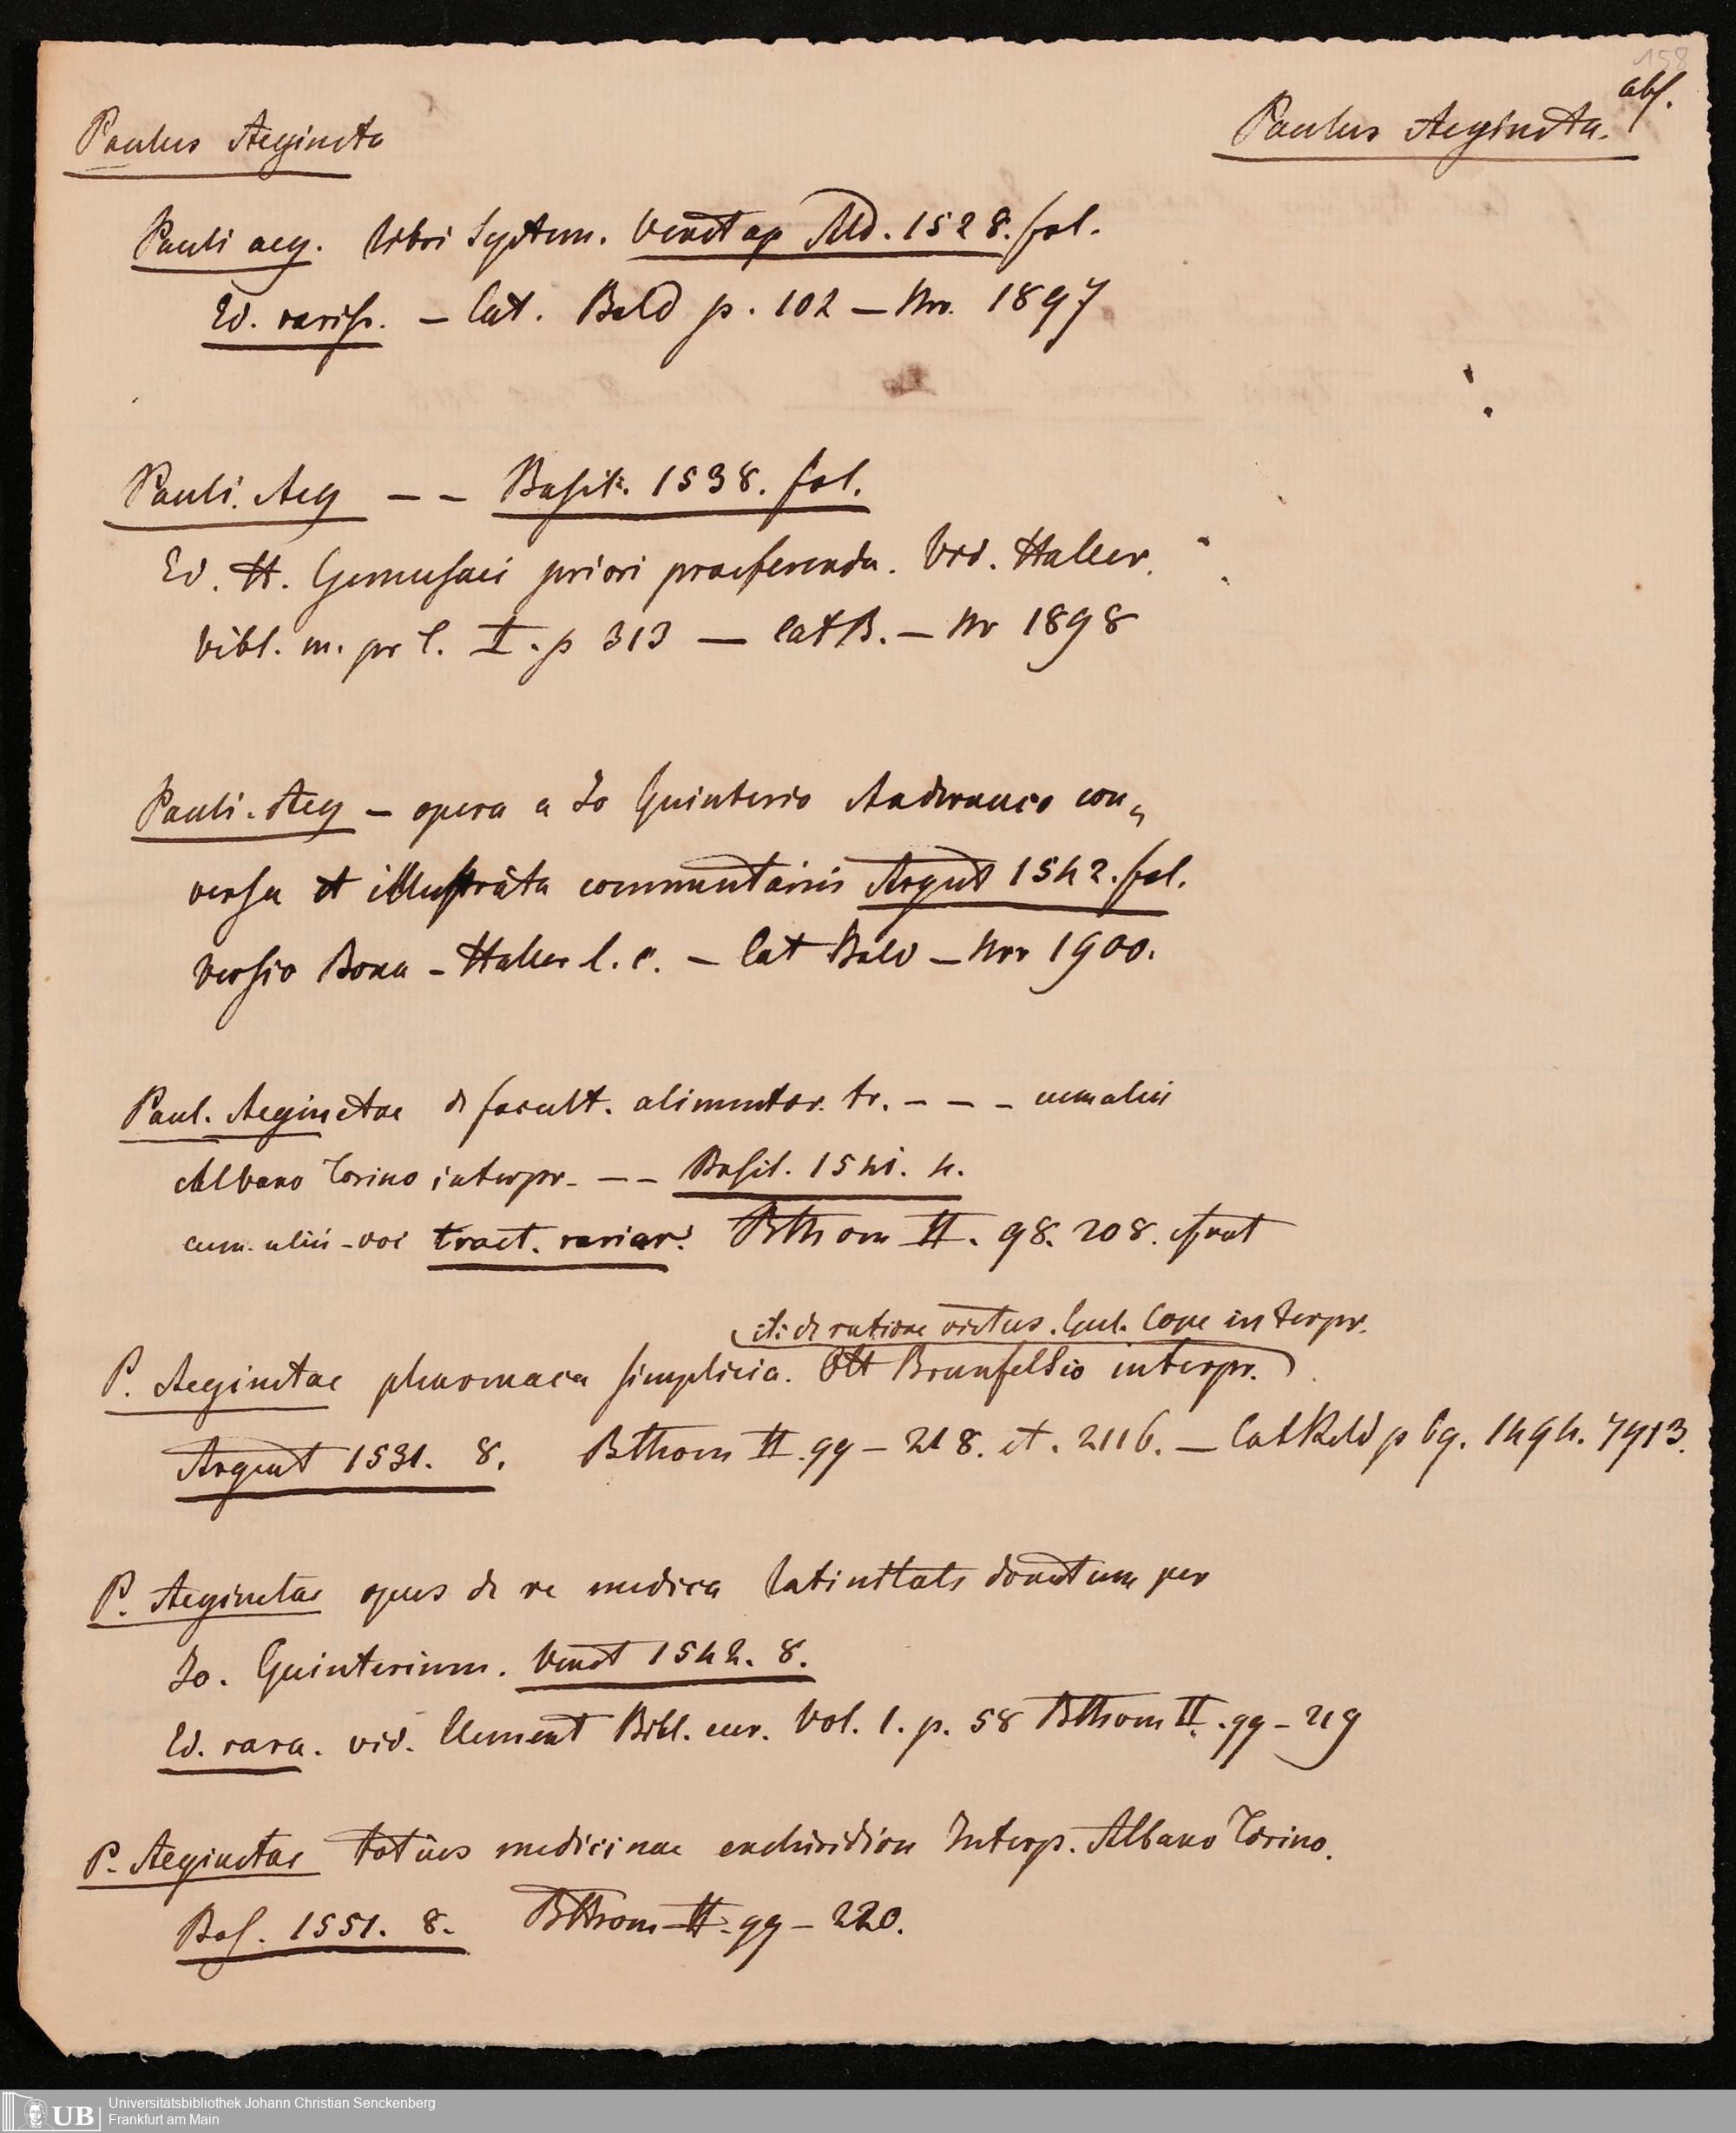 158
abs.
Paulus Aegineta
Paulus Aegineta.
Pauli aeg. libri Septem. Venet ap Ald. 1528. fol.
Ed. rariss. – Cat. Bald p. 102 – Nro. 1897
Pauli. Aeg – – Basil. 1538. fol.
Ed. H. Gemusaei priori praeferenda. Vid. Haller.
bibl. m. pr l. I. p 313 – Cat B. – Nr 1898
Pauli. Aeg – opera a Jo Guinterio Andernaco con„
versa et illustrata commentariis Argent 1542. fol.
versio Bona – Haller l. c. – Cat Bald – Nro 1900.
Paul. Aeginetae d facult. alimentor. tr. – – – cum aliis
Albano Torino interpr. – – Basil. 1541. 4.
cum. aliis – tract. varior. BThom II. 98. 208.
it: de ratione victus. Gul. Cope interpr.
P. Aeginetae pharmaca simplicia. Ott Brunfelsio interpr.
Argent 1531. 8. BThom II. 99 – 218. et. 2116. – Cat Bald p 69. 1494. 7913.
P. Aeginetae opus de re medica latinitate donatum per
Jo. Guinterium. Venet 1542. 8.
Ed. rara. vid. Clement Bibl. cur. Vol. 1. p. 58 BThom II. 99 – 219
P. Aeginetae totius medicinae enchiridion Interp. Albano Torino.
Bas. 1551. 8. BThom II. 99 – 220.
UB
Universitätsbibliothek Johann Christian Senckenberg
Frankfurt am Main